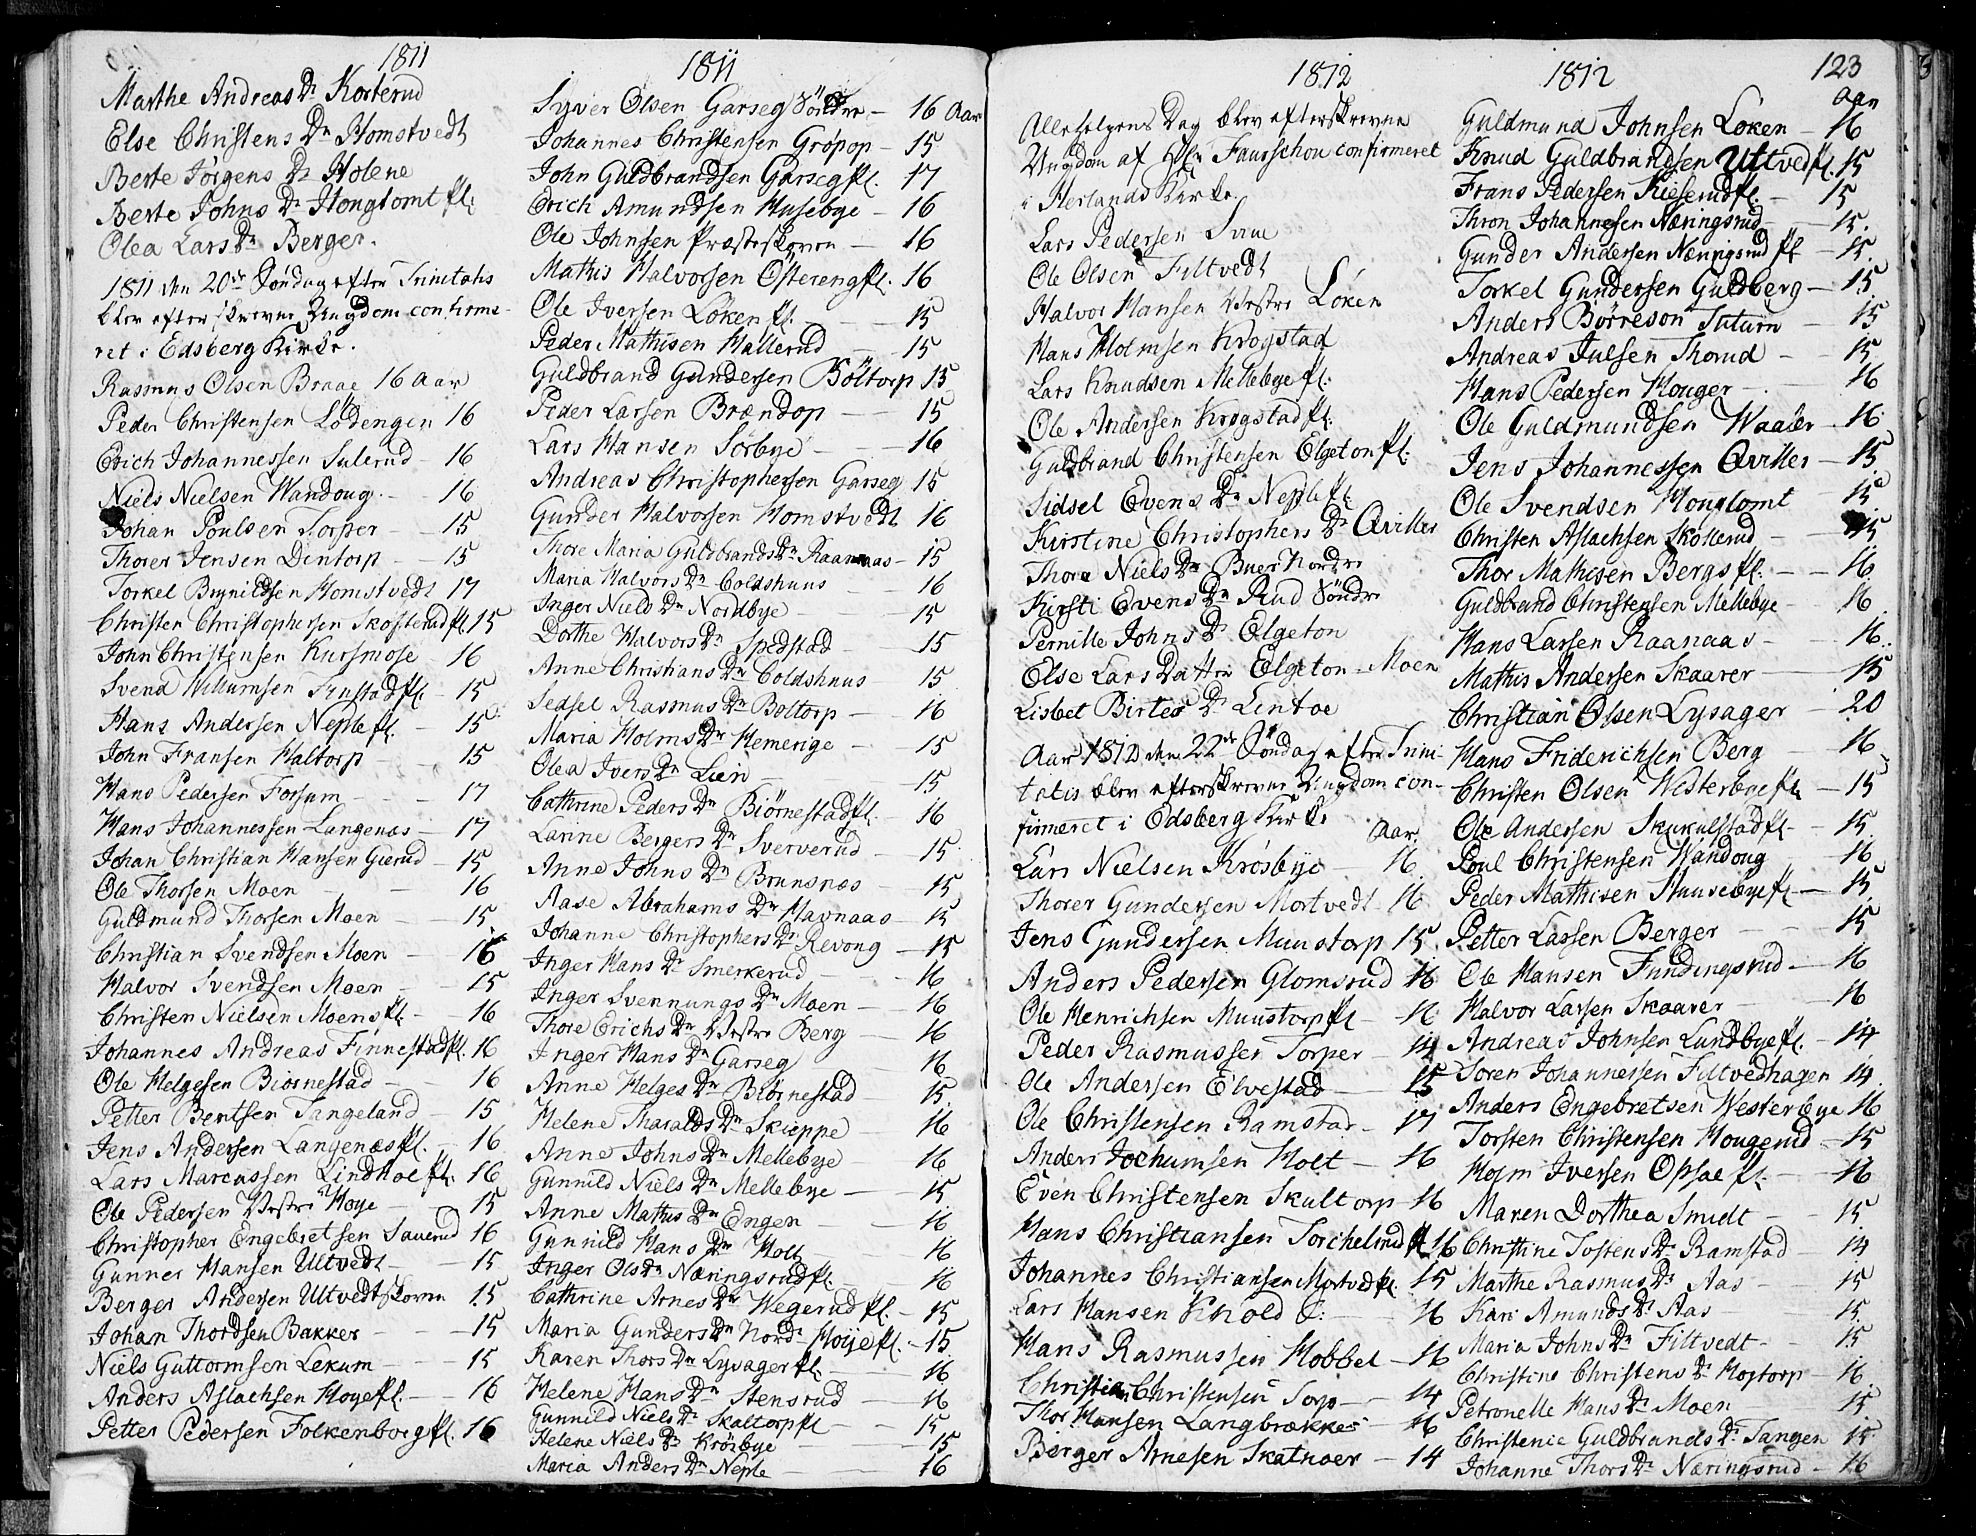 1811
Marthe Andreas Dr Korterud
Else Christens Dr Homstvedt
Berte Jörgens Dr Holene
Berte Johns Dr Honglomt fl:
Olea Lars Dr Berger.
1811 den 20de Söndag efter Trinitatis
blev efterskrevne Ungdom confirme-
ret i Edsberg Kirke.
Rasmus Olsen Braae 16 Aar
Peder Christensen Lödengen 16
Erich Johannessen Sulerud - 16
Niels Nielsen Wandoug. - 16
Johan Poulsen Torper - 15
Thorer Jensen Dentorp - 15
Torkel Brynildsen Homstvedt 17
Christen Christophersen Skofterud fl. 15
John Christensen Kursmose 16
Svend Willumsen Finstad fl. - 15
Hans Andersen Neple fl. - 15
John Fransen Haltorp - 15
Hans Pedersen Forsum - 17
Hans Johannessen Langenæs - 17
Johan Christian Hansen Gierud - 15
Ole Thorsen Moen - 16
Guldmund Thorsen Moen - 15
Christian Svendsen Moen - 16
Halvor Svendsen Moen - 15
Christen Nielsen Moens fl. - 16
Johannes Andreas Finnestad fl. 16
Ole Helgesen Biörnestad - 16
Petter Bentsen Tangeland - 15
Jens Andersen Langenæs fl. - 16
Lars Marcussen Lindhoe fl. 16
Ole Pedersen Vestre Höye - 15
Christopher Engebretsen Sauerud 16
Gunner Hansen Ultvedt - 15
Berger Andersen Ultvedtskoven 15
Johan Thordsen Bakker - 15
Niels Guttormsen Lekum - 15
Anders Aslachsen Hoye fl. - 16
Petter Pedersen Folkenborg fl. 16
1811
Syver Olsen Garseg Söndre - 16 Aar
Johannes Christensen Gröpop - 15
John Guldbrandsen Garseg fl. 17
Erich Amundsen Husebye - 16
Ole Johnsen Præsteskoven - 16
Mathis Halvorsen Östereng fl. 16
Ole Iversen Löken fl. - 15
Peder Mathisen Hallerud - 15
Guldbrand Gundersen Böltorp 15
Peder Larsen Brændop - 15
Lars Hansen Sörbye - 16
Andreas Christophersen Garseg 15
Gunder Halvorsen Homstvedt 16
Thore Maria Guldbrands Dr Raanaas - 15
Maria Halvors Dr Coldshuus - 16
Inger Niels Dr Nordbye 15
Dorthe Halvors Dr Spedstad - 15
Anne Christians Dr Coldshuus - 15
Sedsel Rasmus Dr Boltorp - 16
Maria Holms Dr Hemerige - 15
Olea Ivers Dr Lien - 15
Cathrine Peders Dr Biörnestad fl. 16
Larine Bergers Dr Sververud - 15
Anne Johns Dr Brunsnæs - 15
Aase Abrahams Dr Havnaas - 15
Johanne Christophers Dr Revoug - 15
Inger Hans Dr Smerkerud - 16
Inger Svennungs Dr Moen - 16
Thore Erichs Dr Vestre Berg - 16
Inger Hans Dr Garseg 16
Anne Helges Dr Biörnestad 15
Helene Tharalds Dr Skieppe - 16
Anne Johns Dr Mellebye - 16
Gunnild Niels Dr Mellebye - 15
Anne Mathis Dr Engen - 16
Gunnild Hans Dr Holt - 16
Inger Ols Dr Næringsrud fl. - 16
Cathrine Arnes Dr Wegerud fl. - 15
Maria Gunders Dr Nord: Hoije fl. - 15
Karen Thors Dr Lysager fl. - 16
Helene Hans Dr Stensrud - 16
Gunnild Niels Dr Skaltorp fl. - 15
Helene Niels Dr Krösbye - 15
Maria Anders Dr Neple - 16
1812
Allehelgens Dag blev efterskrevne
Ungdom af Hr. Faurschou confirmeret
i Herlands Kirke.
Lars Pedersen Siim
Ole Olsen Filtvedt
Halvor Hansen Vestre Löken
Hans Holmsen Krogstad
Lars Knudsen Mellebye fl:
Ole Andersen Krogstad fl.
Guldbrand Christensen Elgeton fl.
Sidsel Evens Dr Neple fl.
Kirstine Christophers Dr Qviller
Thore Niels Dr Buer Nordre
Kirsti Evens Dr Rud Söndre
Pernille Johns Dr Elgeton
Else Lars Datter Elgeton-Moen
Lisbet Birtes Dr Lentoe
Aar 1812 den 22de Söndag efter Trini-
tatis blev efterskrevne Ungdom con-
firmeret i Edsberg Kirke Aar
Lars Nielsen Krösbye - 16
Thorer Gundersen Mortvedt - 16
Jens Gundersen Muustorp 15
Anders Pedersen Glomsrud 16
Ole Henrichsen Muustorp fl. - 16
Peder Rasmussen Torper - 14
Ole Andersen Elvestad - 15
Ole Christensen Ramstad - 17
Anders Jochumsen Holt - 16
Even Christensen Skultorp - 16
Hans Christiansen Torchelsrud fl. 16
Johannes Christiansen Mortved fl. 15
Lars Hansen Knold - 16
Hans Rasmussen Hobbel - 16
Christian Christensen Torp - 14
Thor Hansen Langbrække - 16
Berger Arnesen Skatnoer - 14
1812
123
Aar
Guldmund Johnsen Löken - 16
Knud Guldbrandsen Ultved fl. 15
Frans Pedersen Kieserud fl. - 15
Thron Johannesen Næringsrud - 15.
Gunder Andersen Næringsrud fl - 15.
Torkel Gundersen Guldberg - 15
Anders Börreson Tuturn - 15
Andreas Julsen Thorud - 15
Hans Pedersen Houger - 16
Ole Guldmundsen Waaler - 16
Jens Johannessen Qviller - 15
Ole Svendsen Honglomt 15
Christen Aslachsen Skollerud - 15
Thor Mathisen Bergs fl. - 16
Guldbrand Christensen Mellebye - 16
Hans Larsen Raanaas - 16
Mathis Andersen Skaarer - 15
Christian Olsen Lysager - 20
Hans Friderichsen Berg 16
Christen Olsen Westerbye fl. - 15
Ole Andersen Skukulstad fl. - 15
Poul Christensen Wandoug - 16
Peder Mathisen Huusebye fl. - 15
Petter Larsen Berger - 15
Ole Hansen Fundingsrud - 16
Halvor Larsen Skaarer - 16
Andreas Johnsen Lundbye fl. - 14
Sören Johannesen Filtvedhagen 14
Anders Engebretsen Westerbye 16
Torsten Christensen Hougerud - 15
Holm Iversen Opsae fl. - 16
Maren Dorthea Smidt - 15
Christine Tostens Dr Ramstad - 14
Marthe Rasmus Dr Aas - 15
Kari Amunds Dr Aas 15
Maria Johns Dr Filtvedt - 15
Christine Christens Dr Hostorp - 16
Petronelle Hans Dr Moen 15
Christence Guldbrands Dr Tangen 15
Johanne Thors Dr Næringsrud - 16